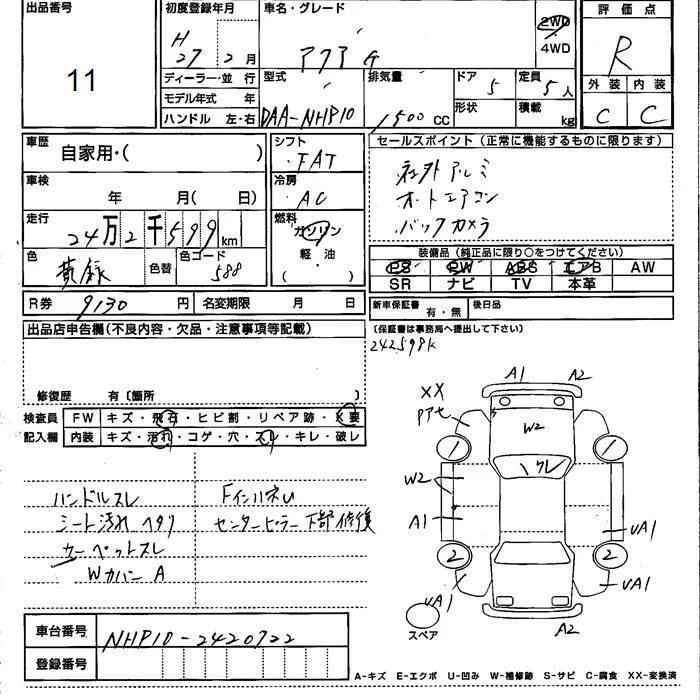 出品番号
11
初度登録年月
H
27 2月
ディーラー・並 行
モデル年式 年
ハンドル 左・右
車名・グレード
アクア G
2WD
4WD
型式
DAA-NHP10
排気量
1500 CC
ドア
5
形状
定員
5人
積載
kg
評価点
R
外装 内装
C C
車歴
自家用・( )
車検
年 月( 日)
走行
24万2千599km
色
黄緑
色替
色コード
588
シフト
FAT
冷房
AC
燃料
ガソリン
・軽油・
( )
セールスポイント(正常に機能するものに限ります)
社外アルミ
オートエアコン
バックカメラ
装備品(純正品に限り○をつけてください)
PS PW ABS エアB AW
SR ナビ TV 本革
R券 9130 円 名変期限 月 日
新車保証書 有・無 後日品
(保証書は事務局へ提出して下さい)
242598K
出品店申告欄(不良内容・欠品・注意事項等記載)
修復歴 有〔箇所 〕
検査員
記入欄
FW キズ・飛石・ヒビ割・リペア跡・X要
内装 キズ・汚れ・コゲ・穴・スレ・キレ・破レ
ハンドルスレ
シート汚れ ヘタリ
カーペットスレ
Wカバー A
Fインパネい
センターピラー下部修復
A1 A2
XX
W2
ワレ
1 1
W2
A1
UA1
2 2
UA1 UA1
スペア
A2
車台番号 NHP10-2420722
登録番号
A-キズ E-エクボ U-凹み W-補修跡 S-サビ C-腐食 XX-変換済